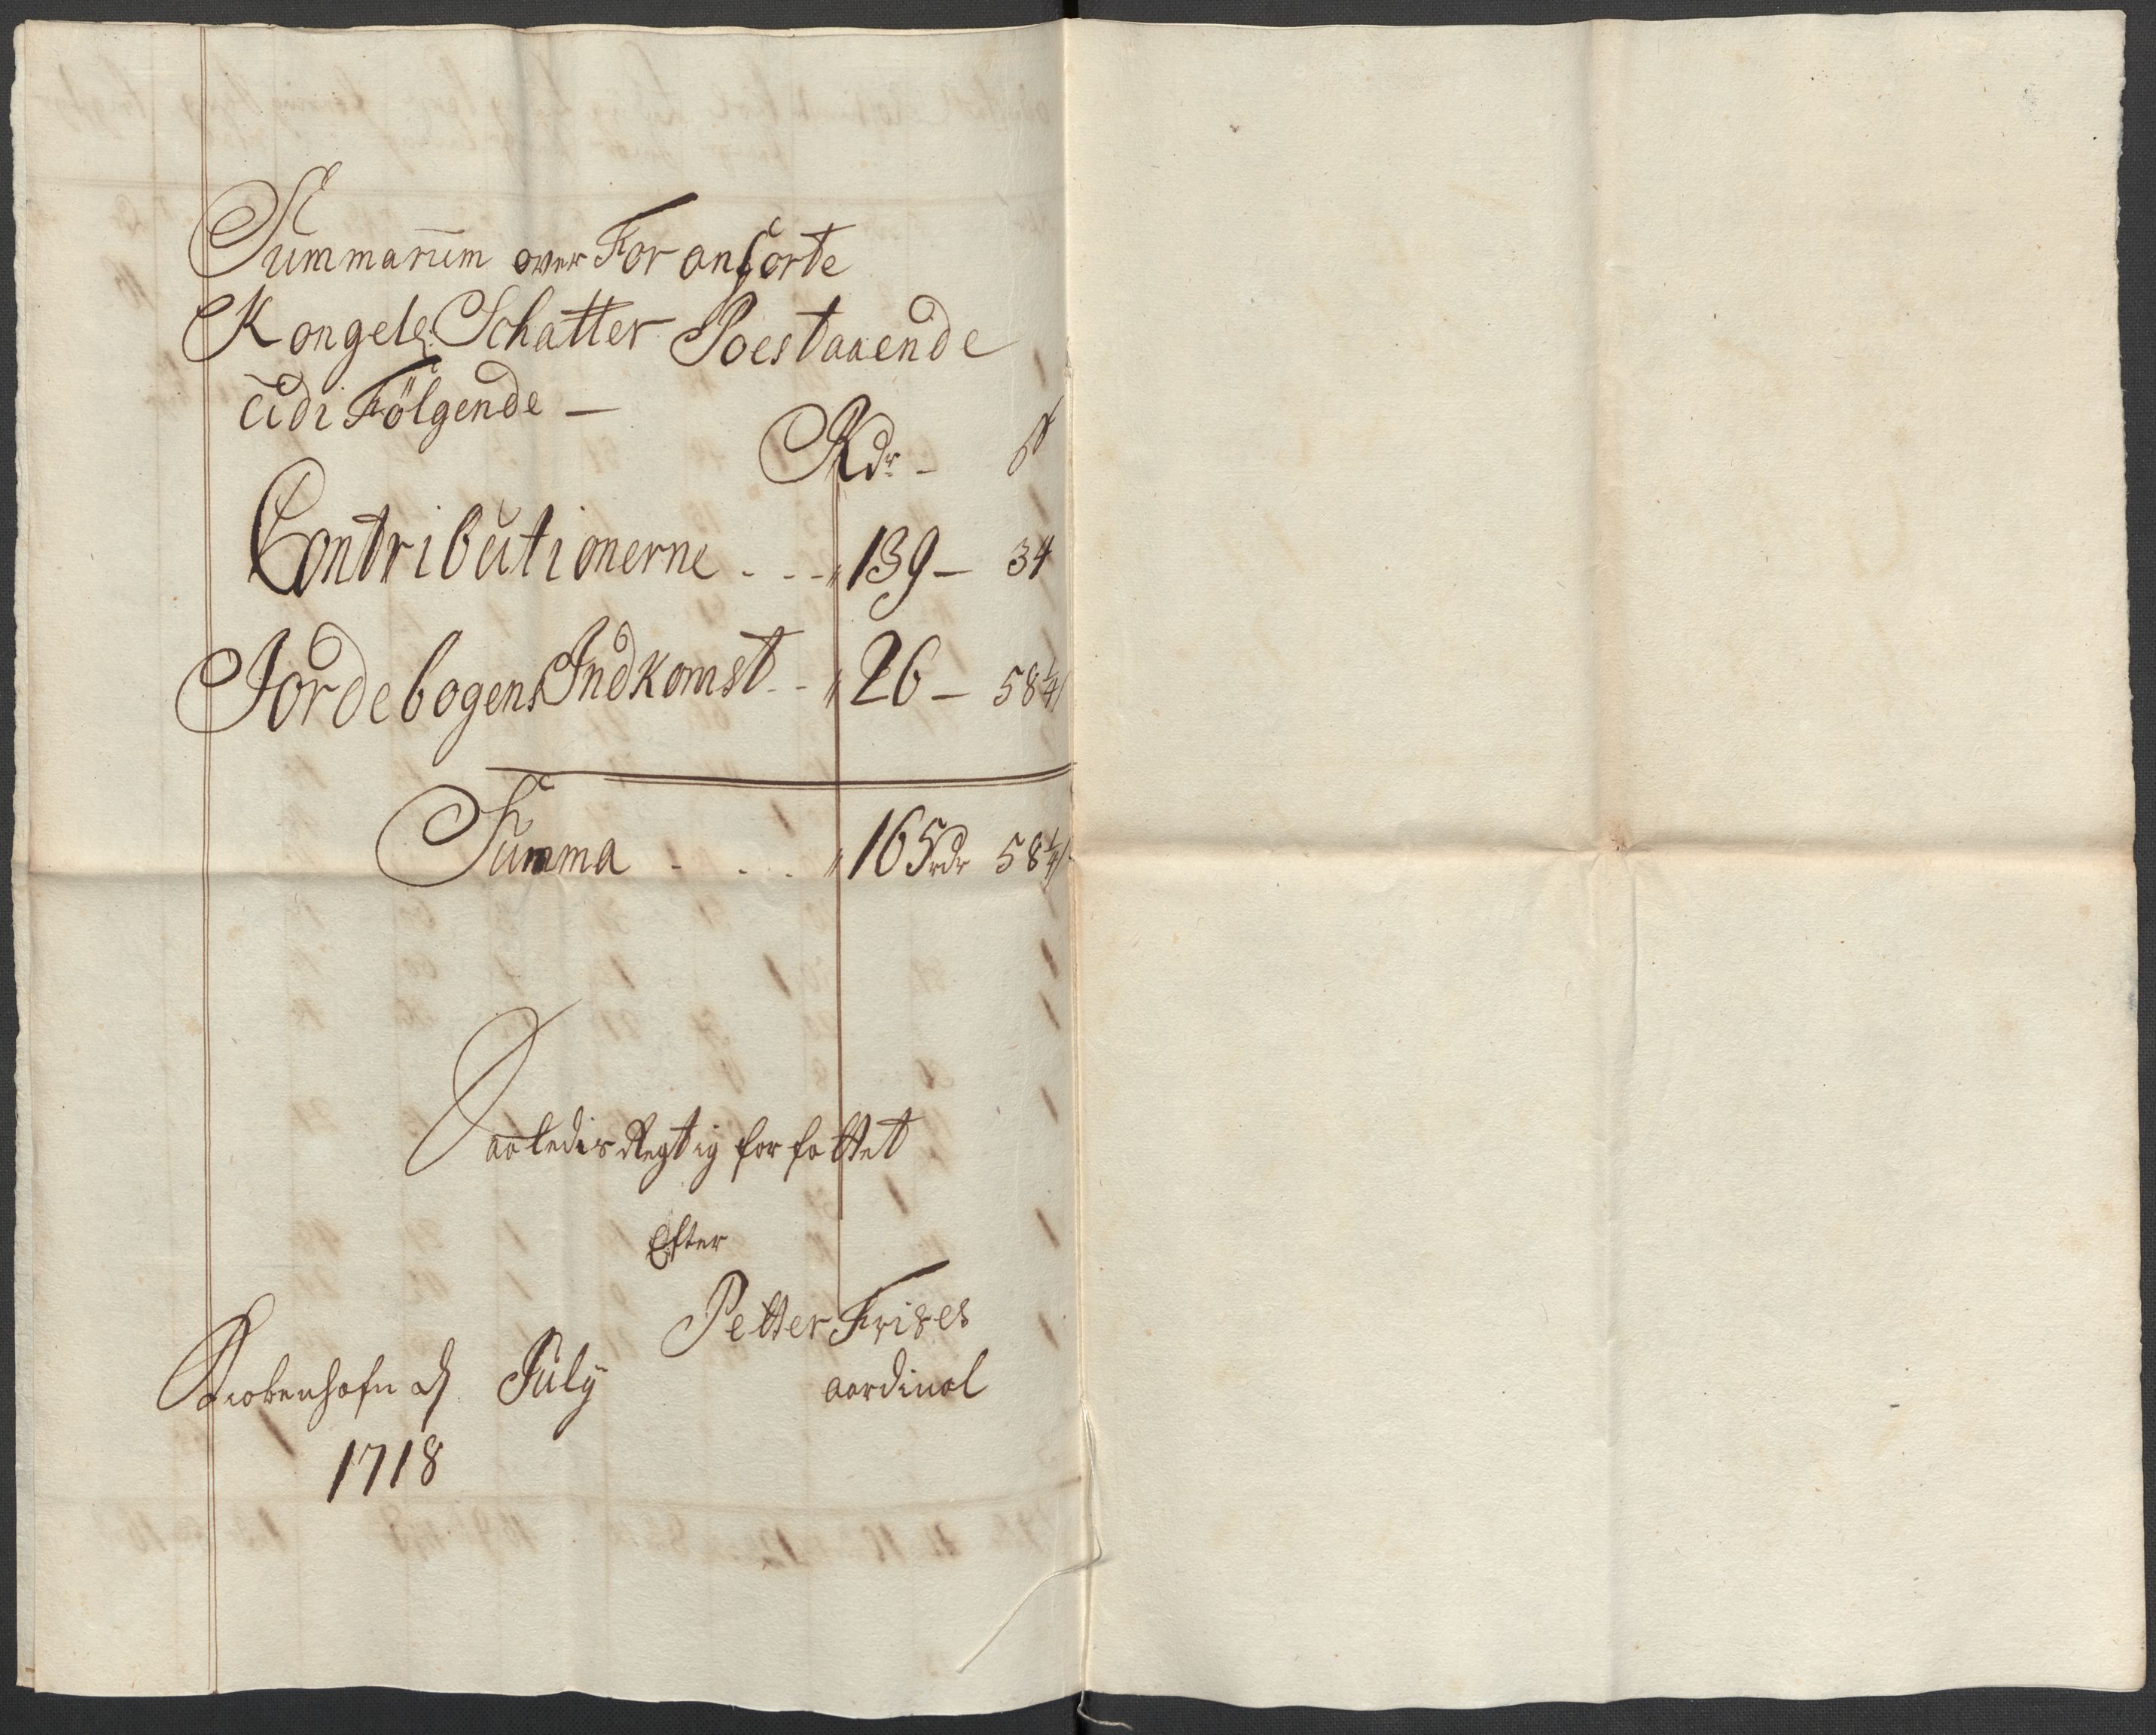 Summarium over For anførte
Kongelg: Schatter Poestaaende
udi Fölgende —
Rdr — ß
Contributionerne - - - 139 — 34
Jordebogens Indkomst - - 26 — 58¼
Summa - - - - 165 rdr 58¼
Saaledis Regtig forfattet
Efter
Petter Frises
Kiøbenhafn d July aordinal
1718